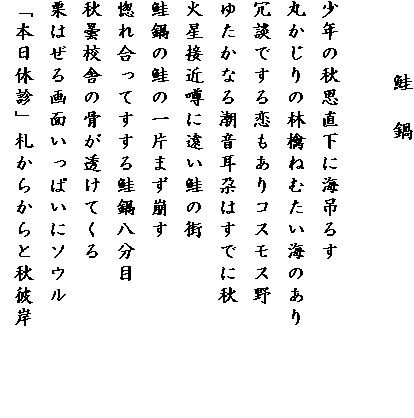 鮭鍋
少年の秋思直下に海吊るす
丸かじりの林檎ねむたい海のあり
冗談でする恋もありコスモス野
ゆたかなる潮音耳朶はすでに秋
火星接近噂に遠い鮭の街
鮭鍋の鮭の一片まず崩す
惚れ合ってすする鮭鍋八分目
秋曇校舎の骨が透けてくる
栗はぜる画面いっぱいにソウル
「本日休診」札からからと秋彼岸